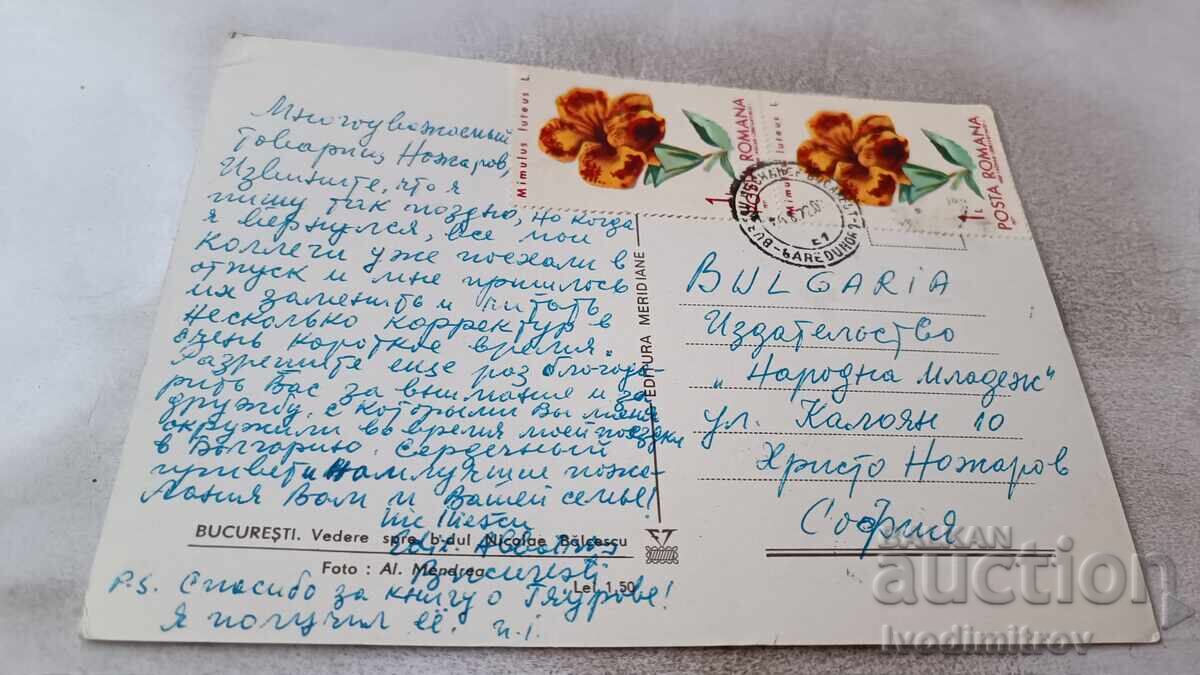 Многоуважаемый
товарищ Ножаров,
Извините, что я
пишу так поздно, но когда
я вернулся, все мои
коллеги уже поехали в
отпуск и мне пришлось
их заменить и читать
несколько корректур в
очень короткое время.
Разрешите еще раз благода-
рить Вас за внимание и за
дружбу, с которыми Вы меня
окружили во время моей поездки
в Болгарию. Сердечный
привет и наилучшие поже-
лания Вам и Вашей семье!
Nic Iliescu
Edit. Albatros
București
P.S. Спасибо за книгу о Гяурове!
Я получил её. N.I.
BUCUREȘTI. Vedere spre b-dul Nicolae Bălcescu
Foto : Al. Mendrea
Lei 1,50
EDITURA MERIDIANE
Mimulus luteus L.
1 L
POSTA ROMANA
Mimulus luteus L.
1 L
POSTA ROMANA
BULGARIA
Издателство
„Народна Младеж“
ул. Калоян 10
Христо Ножаров
София
BALKAN
auction
ivodimitrov